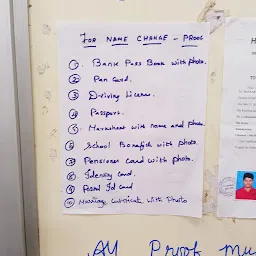 FOR NAME CHANGE - PROOF
① Bank Pass Book with photo.
② Pan Card.
③ Driving License
④ Passport.
⑤ Marksheet with name and photo.
⑥ School Bonafide with photo.
⑦ Pensioner Card with photo.
⑧ Identity Card.
⑨ Postal Id Card
⑩ Marriage Certificate With Photo
All Proof mu
H
TO